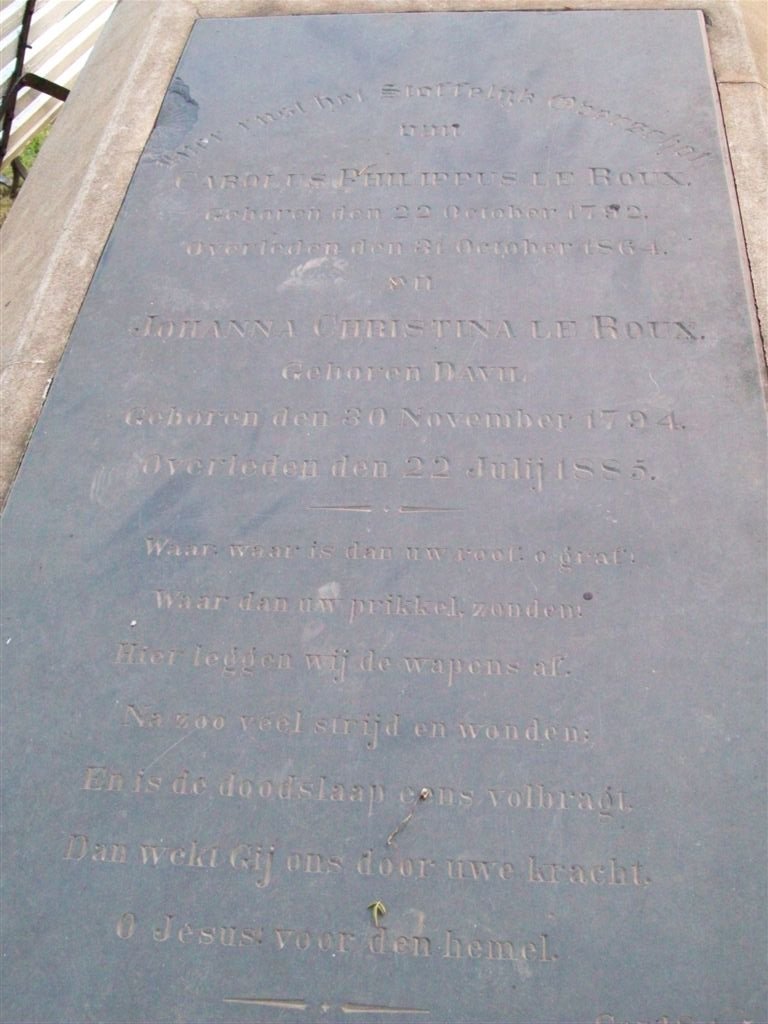 rust het Stoffelijk Overschot
van
CAROLUS PHILIPPUS LE ROUX.
Geboren den 22 October 1792.
Overleden den 31 October 1864.
en
JOHANNA CHRISTINA LE ROUX.
Geboren DAVEL.
Geboren den 30 November 1794.
Overleden den 22 Julij 1885.
Waar, waar is dan uw roof, o graf!
Waar dan uw prikkel, zonden!
Hier leggen wij de wapens af.
Na zoo veel strijd en wonden;
En is de doodslaap eens volbragt,
Dan wekt Gij ons door uwe kracht,
O Jesus! voor den hemel.